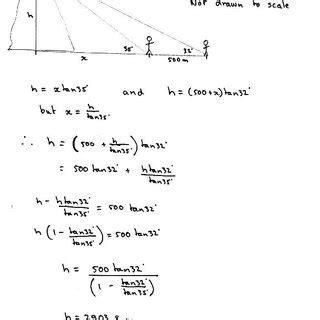 Not drawn to scale
h
x
35°
32°
500m
h = x tan35° and h = (500+x)tan32°
but x = h/tan35°
∴ h = (500 + h/tan35°) tan32°
= 500 tan32° + h tan32°/tan35°
h - h tan32°/tan35° = 500 tan32°
h (1 - tan32°/tan35°) = 500 tan32°
h = 500 tan32° / (1 - tan32°/tan35°)
h = 2903.8